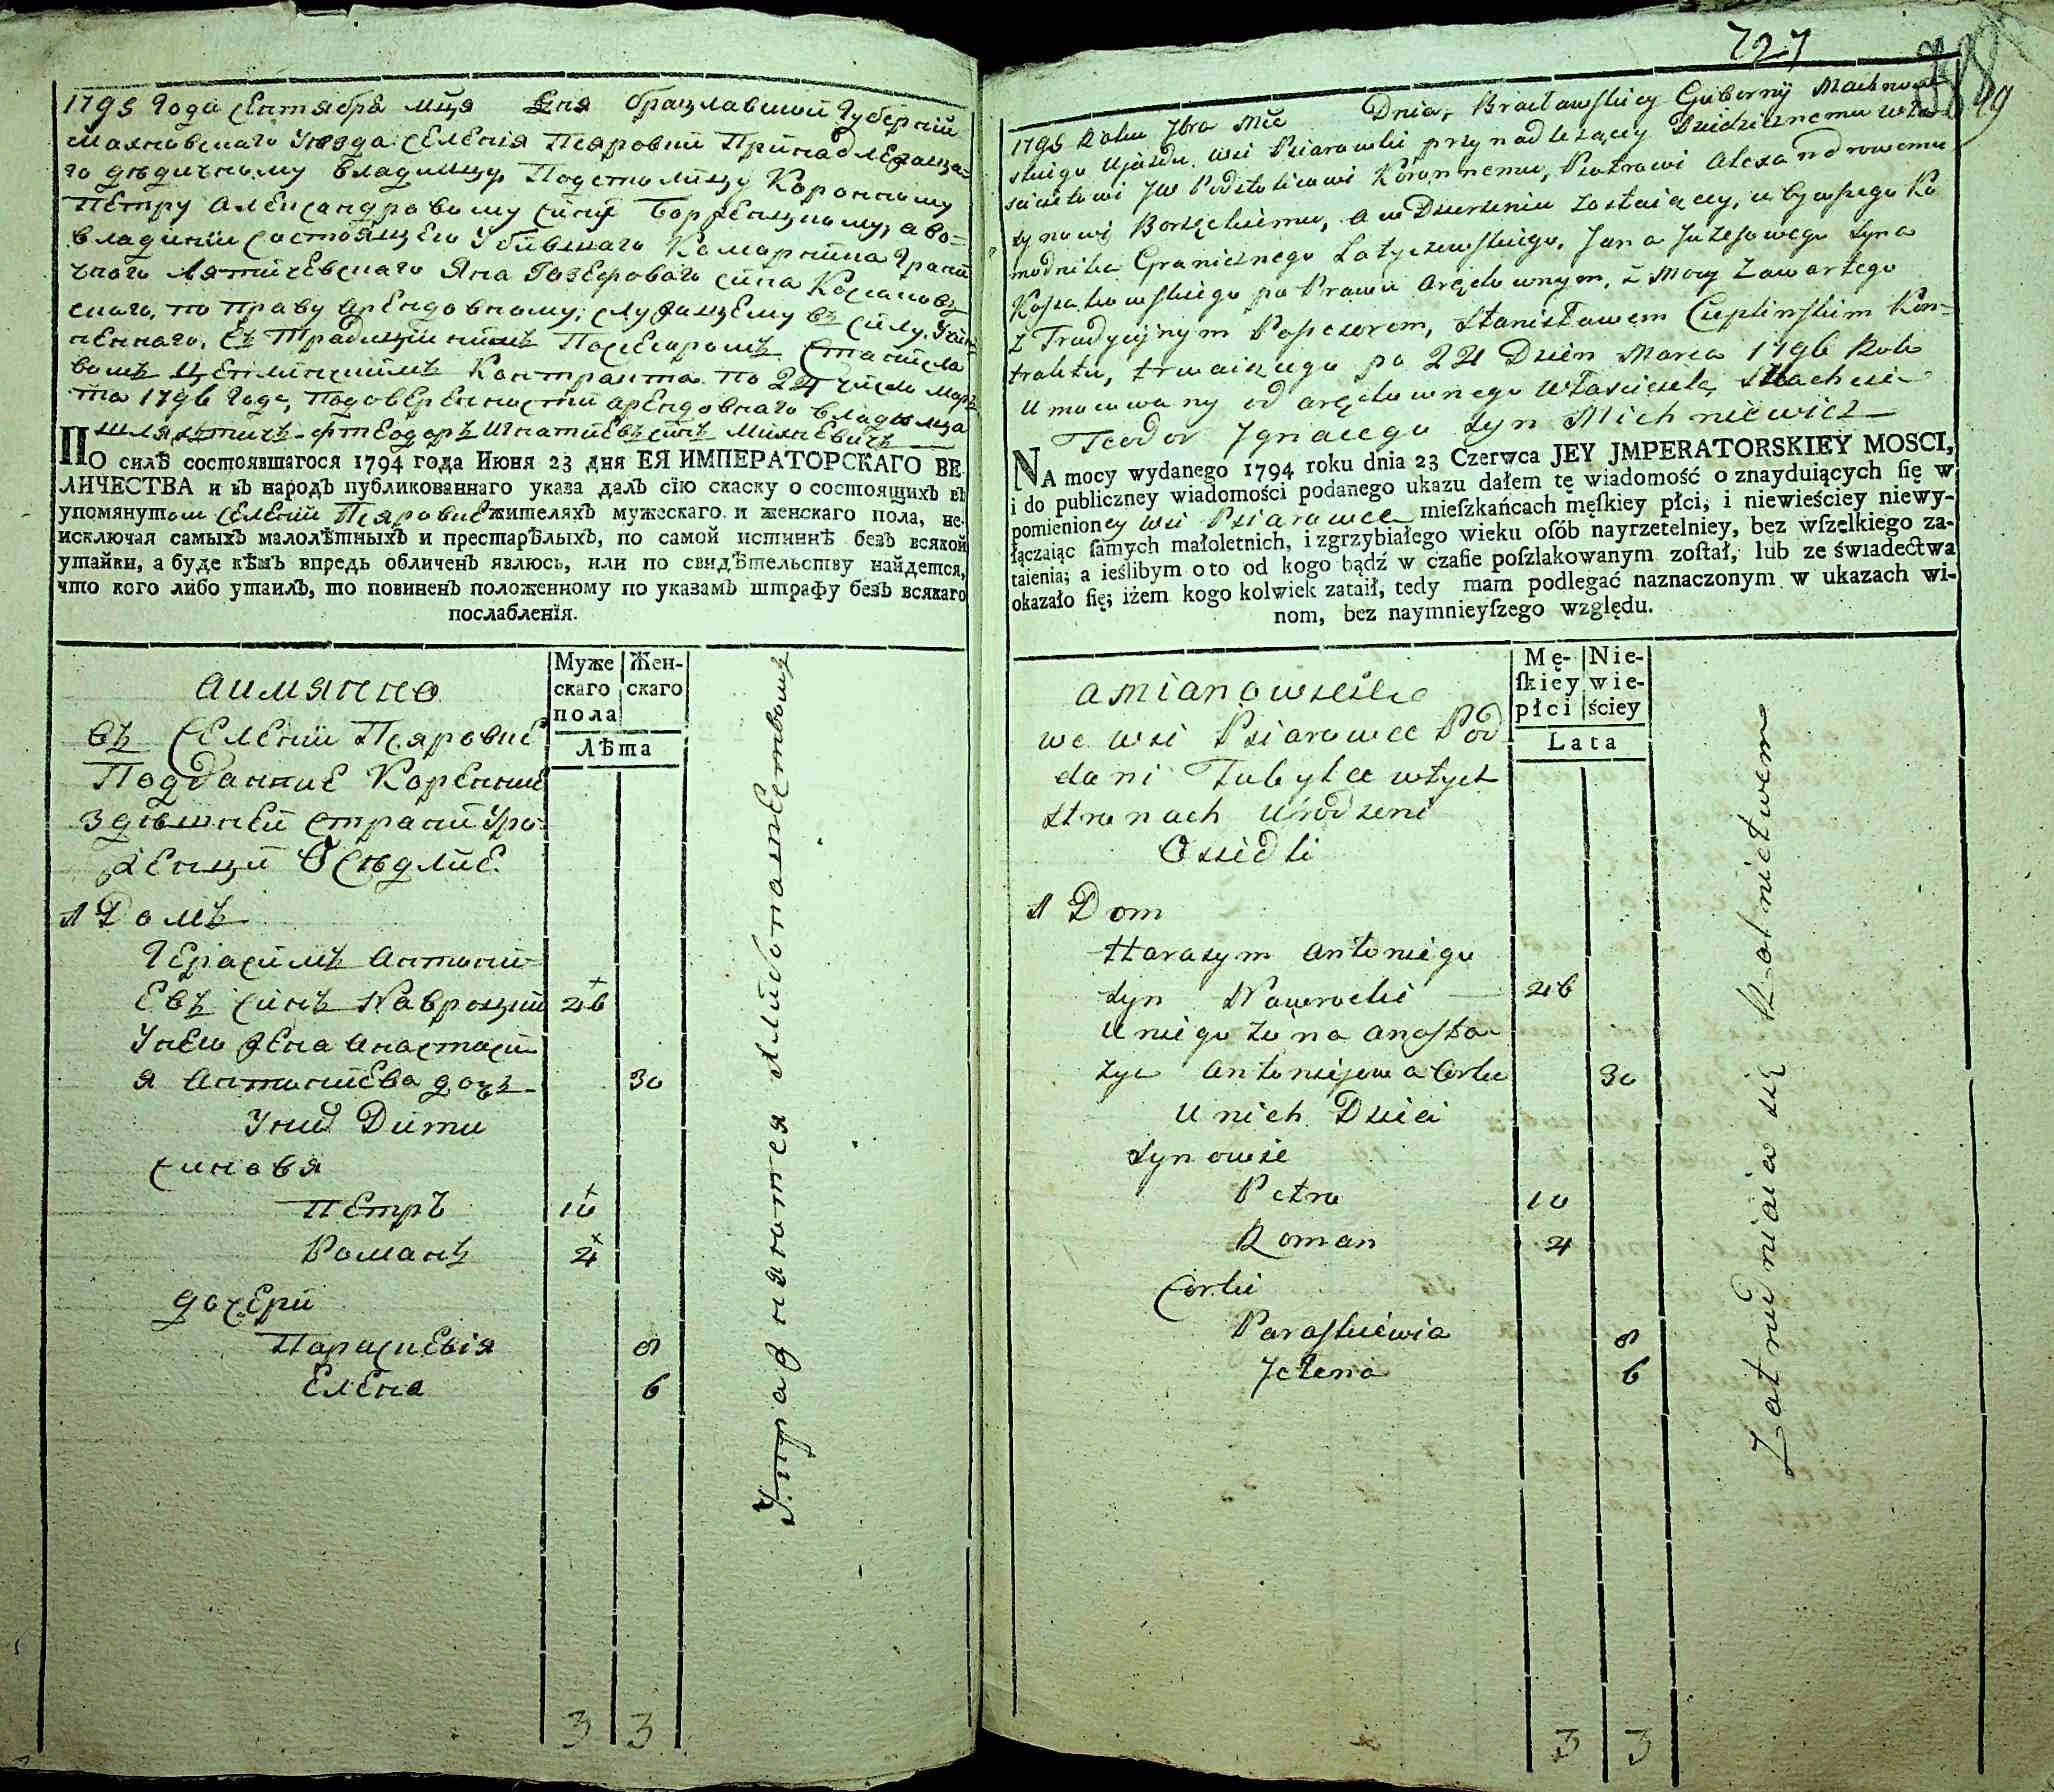 1795 Года Сентября мца Дня Брацлавской Губернии
Махновского Уезда Селения Псяровки Принадлежаща-
го дѣдичному Владѣлцу Подстолицу Коронному
Петру Александровому сину Борженцкому, а во-
владении состоящего Убившаго Коморника Грани
чного Лятичевского Яна Иозефоваго сина Косаков
ского, по праву арендовному, служащему въ силу, Учи
ненного, съ Традиции нимъ Посесоромъ Станисла
вомъ Цеплинскимъ Контракта по 24 число мар
та 1796 года, Подоверенности арендовнаго Владѣлца
шляхтичъ Фтеодоръ Игнатиевъ синъ Михневичъ
ПО силѣ состоявшагося 1794 года Июня 23 дня ЕЯ ИМПЕРАТОРСКАГО ВЕ-
ЛИЧЕСТВА и въ народъ публикованнаго указа далъ сїю скаску о состоящихъ въ
упомянутом Селении Псяровке жителяхъ мужескаго и женскаго пола, не-
исключая самыхъ малолѣтныхъ и престарѣлыхъ, по самой истиннѣ безъ всякой
утайки, а буде кѣмъ впредь обличенъ явлюсь, или по свидѣтельству найдется,
что кого либо утаилъ, то повиненъ положенному по указамъ штрафу безъ всякаго
послабленїя.
Муже Жен-
скаго скаго
пола
Лѣта
аимянно
въ Селении Псяровке
Подданние Коренние
Здѣшней страни Уро
женци Осѣдлие.
1 Домъ
Герасимъ Антони-
евъ синъ Навроцкий 26
Унего жена Анастаси
я Антониева дочь 30
Уних Дити
синовя
Петръ 10
Романъ 4
дочери
Параскевія 8
Елена 6
Упражняются хлибопашествомъ
3 3
727
388
49
1795 Roku 7bra Mce Dnia, Bracławskiey Gubernij Machnow
skiego Ujazdu wsi Psiarowki przynadlezącey Dziedzicznemu wła
sicielowi JW Podstolicowi Koronnemu, Piotrowi Alexandrowemu
synowi Borzęckiemu, a w Dzierzeniu zostaiącey, u bywszego Ko
mornika Granicznego Latyczewskiego, Jana Juzefowego syna
Kossakowskiego po Prawu arędownym, z Mocy Zawartego
z Tradycyjnym Possesorem, Stanisławem Cieplinskim Kon-
traktu, trwaiącego po 24 Dzien Marca 1796 Roku
Umocowany od arędownego Własciciela Szlachcic
Teodor Ignacego syn Michniewicz
NA mocy wydanego 1794 roku dnia 23 Czerwca JEY JMPERATORSKIEY MOSCI,
i do publiczney wiadomości podanego ukazu dałem tę wiadomość o znayduiących ſię w
pomienioney wsi Psiarowce mieſzkańcach męſkiey płci, i niewieściey niewy-
łączaiąc ſamych małoletnich, i zgrzybiałego wieku oſób nayrzetelniey, bez wſzelkiego za-
taienia; a ieślibym o to od kogo bądź w czaſie poſzlakowanym zoſtał, lub ze świadectwa
okazało ſię; iżem kogo kolwiek zataił, tedy mam podlegać naznaczonym w ukazach wi-
nom, bez naymnieyſzego względu.
Mę- Nie-
ſkiey wie-
płci ściey
Lata
amianowicie
we wsi Psiarowce Pod
dani Tubylce wtych
stronach Urodzeni
Osiedli
1 Dom
Harasym Antoniego
syn Nawrocki 26
Uniego zona Anasta
zyc Antoniejowa Corka 30
Unich Dzieci
synowie
Petro 10
Roman 4
Corki
Paraskiewia 8
Jelena 6
Zatrudniaia się Rolnictwem
3 3